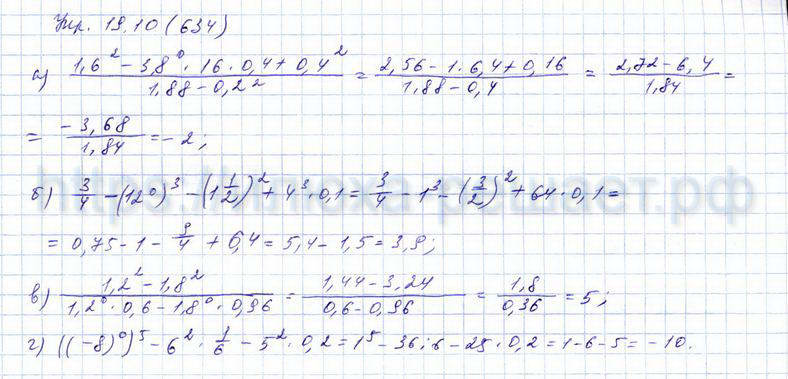 Упр. 19.10 (634)
а) (1,6² − 3,8⁰ · 16 · 0,4 + 0,4²) / (1,88 − 0,2²) = (2,56 − 1 · 6,4 + 0,16) / (1,88 − 0,4) = (2,72 − 6,4) / 1,84 =
= −3,68 / 1,84 = −2;
б) 3/4 − (12⁰)³ − (1 1/2)² + 4³ · 0,1 = 3/4 − 1³ − (3/2)² + 64 · 0,1 =
= 0,75 − 1 − 9/4 + 6,4 = 5,4 − 1,5 = 3,9;
в) (1,2² − 1,8²) / (1,2⁰ · 0,6 − 1,8⁰ · 0,96) = (1,44 − 3,24) / (0,6 − 0,96) = 1,8 / 0,36 = 5;
г) ((−8)⁰)⁵ − 6² · 1/6 − 5² · 0,2 = 1⁵ − 36 : 6 − 25 · 0,2 = 1 − 6 − 5 = −10.